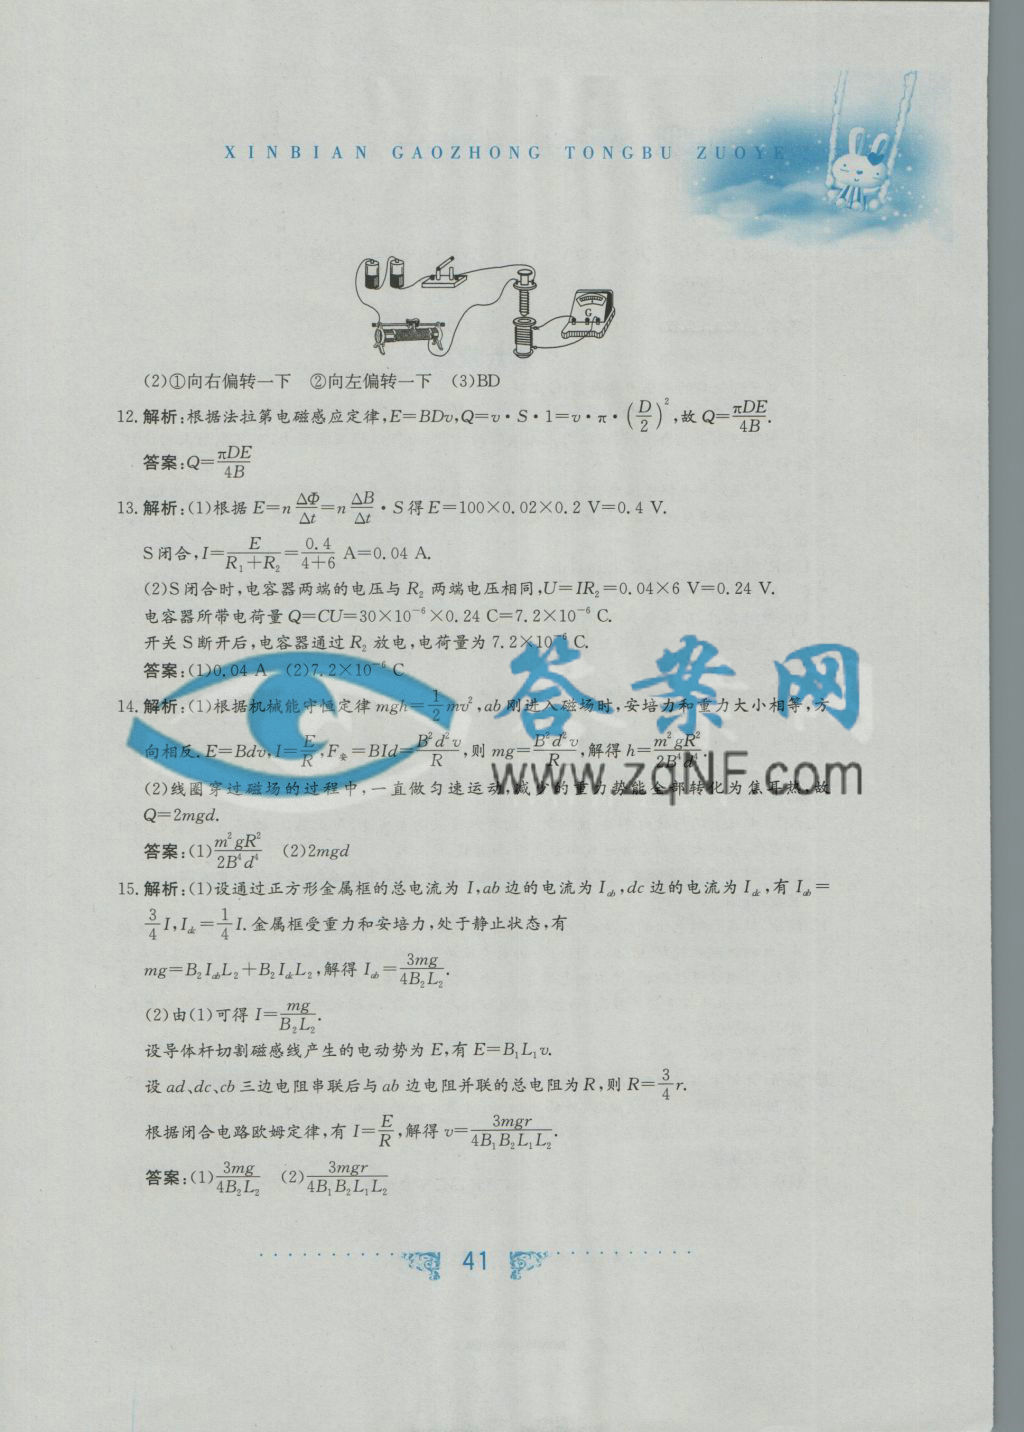 XINBIAN GAOZHONG TONGBU ZUOYE
G
(2)①向右偏转一下 ②向左偏转一下 (3)BD
12.解析:根据法拉第电磁感应定律,E=BDv,Q=v·S·1=v·π·(D/2)²,故 Q=πDE/4B.
答案:Q=πDE/4B
13.解析:(1)根据 E=nΔΦ/Δt=nΔB/Δt·S 得 E=100×0.02×0.2 V=0.4 V.
S闭合,I=E/(R₁+R₂)=0.4/(4+6) A=0.04 A.
(2)S闭合时,电容器两端的电压与 R₂ 两端电压相同,U=IR₂=0.04×6 V=0.24 V.
电容器所带电荷量 Q=CU=30×10⁻⁶×0.24 C=7.2×10⁻⁶ C.
开关 S 断开后,电容器通过 R₂ 放电,电荷量为 7.2×10⁻⁶ C.
答案:(1)0.04 A (2)7.2×10⁻⁶ C
14.解析:(1)根据机械能守恒定律 mgh=1/2 mv²,ab 刚进入磁场时,安培力和重力大小相等,方
向相反.E=Bdv,I=E/R,F安=BId=B²d²v/R,则 mg=B²d²v/R,解得 h=m²gR²/2B⁴d⁴.
(2)线圈穿过磁场的过程中,一直做匀速运动,减少的重力势能全部转化为焦耳热,故
Q=2mgd.
答案:(1)m²gR²/2B⁴d⁴ (2)2mgd
15.解析:(1)设通过正方形金属框的总电流为 I,ab 边的电流为 Iab,dc 边的电流为 Idc,有 Iab=
3/4 I,Idc=1/4 I.金属框受重力和安培力,处于静止状态,有
mg=B₂IabL₂+B₂IdcL₂,解得 Iab=3mg/4B₂L₂.
(2)由(1)可得 I=mg/B₂L₂.
设导体杆切割磁感线产生的电动势为 E,有 E=B₁L₁v.
设 ad、dc、cb 三边电阻串联后与 ab 边电阻并联的总电阻为 R,则 R=3/4 r.
根据闭合电路欧姆定律,有 I=E/R,解得 v=3mgr/4B₁B₂L₁L₂.
答案:(1)3mg/4B₂L₂ (2)3mgr/4B₁B₂L₁L₂
41
答案网
www.zqNF.com